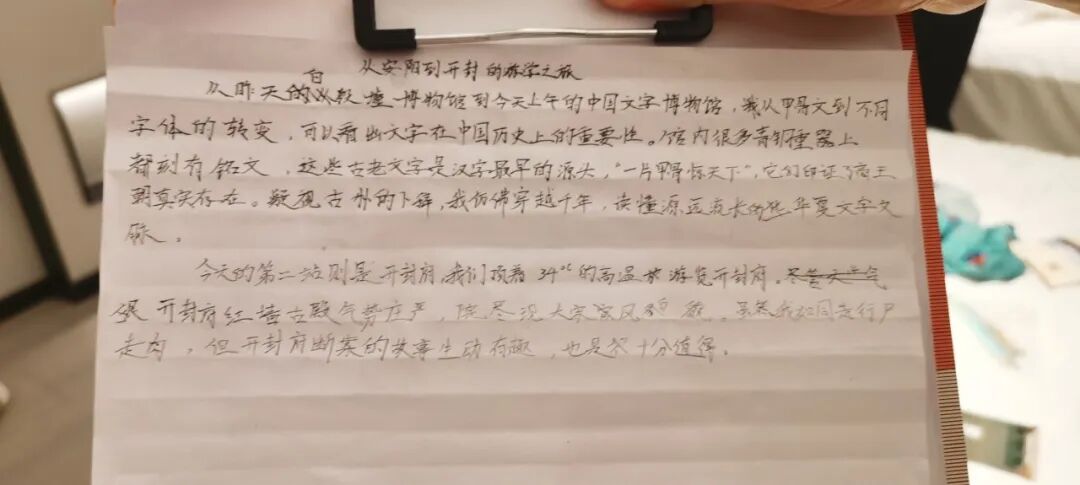 从安阳到开封的旅学之旅
从昨天的自软壹博物馆到今天上午的中国文字博物馆，我从甲骨文到不同
字体的转变，可以看出文字在中国历史上的重要性。馆内很多青铜重器上
都刻有铭文，这些古老文字是汉字最早的源头，“一片甲骨惊天下”，它们印证了商王
朝真实存在。凝视古朴的卜辞，我仿佛穿越千年，读懂源远流长的华夏文字文
脉。
今天的第二站则是开封府，我们顶着34℃的高温游览开封府。
开封府红墙古殿气势庄严，尽现大宋官风。虽然我如同走行尸
走肉，但开封府断案的故事生动有趣，也是十分值得。